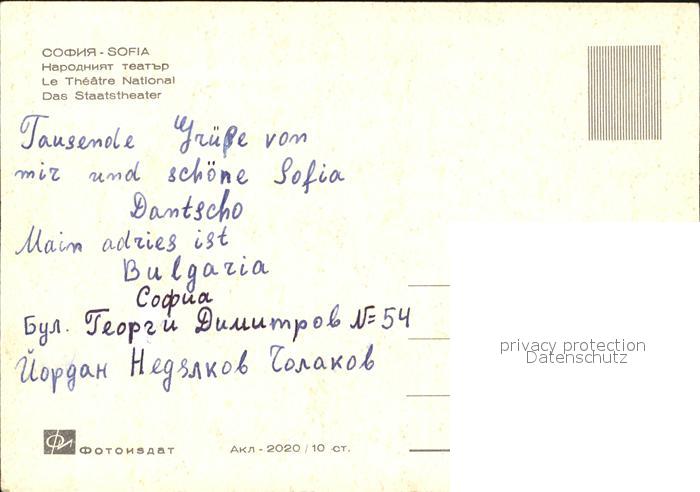 СОФИЯ - SOFIA
Народният театър
Le Théâtre National
Das Staatstheater
Tausende Grüße von
mir und schöne Sofia
Dantscho
Main adries ist
Bulgaria
София
Бул. Георги Димитров №54
Йордан Недялков Чолаков
privacy protection
Datenschutz
Фотоиздат
Акл - 2020 / 10 ст.